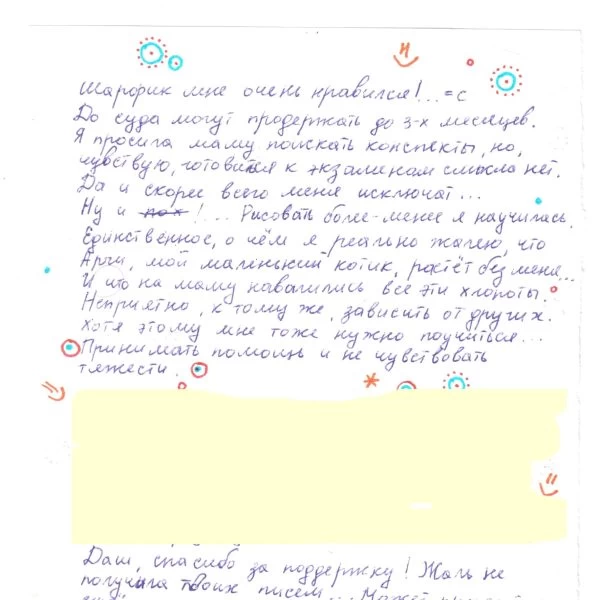 Шарфик мне очень нравился!... =с
До суда могут продержать до 3-х месяцев.
Я просила маму поискать конспекты, но,
чувствую, готовится к экзаменам смысла нет.
Да и скорее всего меня исключат...
Ну и пох!... Рисовать более-менее я научилась.
Единственное, о чём я реально жалею, что
Арчи, мой маленький котик, растёт без меня...
И что на маму навалились все эти хлопоты.
Неприятно, к тому же, зависить от других.
Хотя этому мне тоже нужно поучиться...
Принимать помощь и не чувствовать
тяжести.
Даш, спасибо за поддержку! Жаль не
получила твоих писем... Может